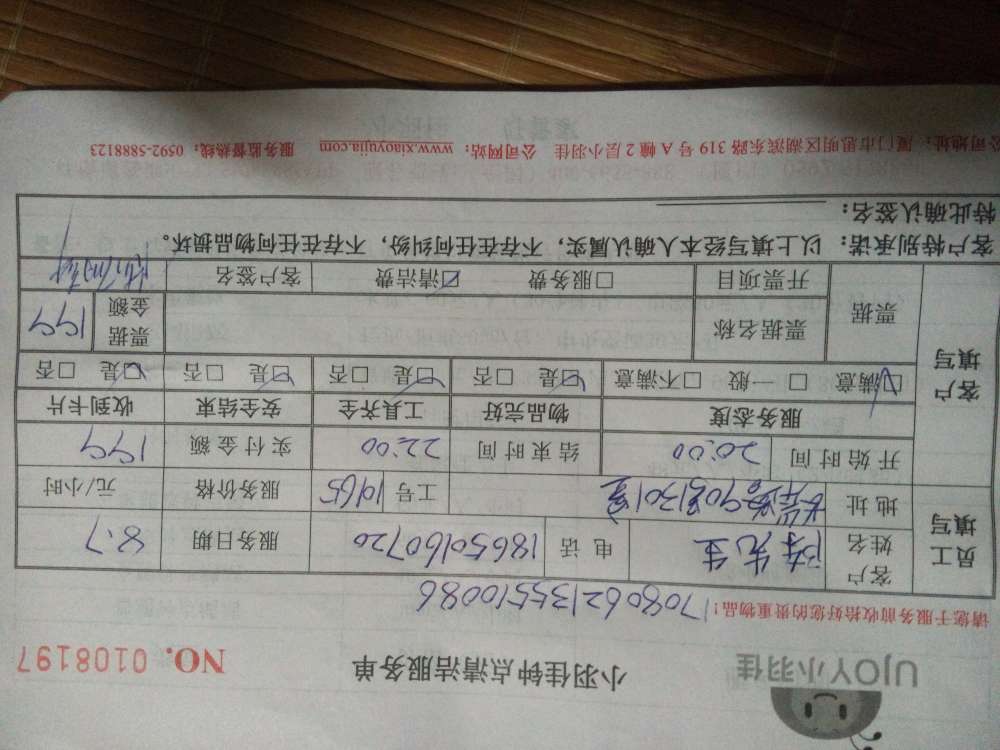 UJOY小羽佳
小羽佳钟点清洁服务单
NO. 0108197
请您于服务前收拾好您的贵重物品!
17080621355510086
员工填写
客户姓名 陈先生 电话 18650160720 服务日期 8.7
地址 90号1301室 工号 1965 服务价格 元/小时
开始时间 20:00 结束时间 22:00 实付金额 199
客户填写
服务态度 物品完好 工具齐全 安全结束 收到卡片
☑满意 □一般 □不满意 ☑是 □否 ☑是 □否 ☑是 □否 ☑是 □否
票据 票据名称 票据金额 199
开票项目 □服务费 ☑清洁费 客户签名
客户特别承诺:以上填写经本人确认,属实,不存在任何纠纷,不存在任何物品损坏。
特此确认签名:
公司地址:厦门市思明区湖滨东路 319 号 A 幢 2 层小羽佳 公司网站:www.xiaoyujia.com 服务监督热线:0592-5888123